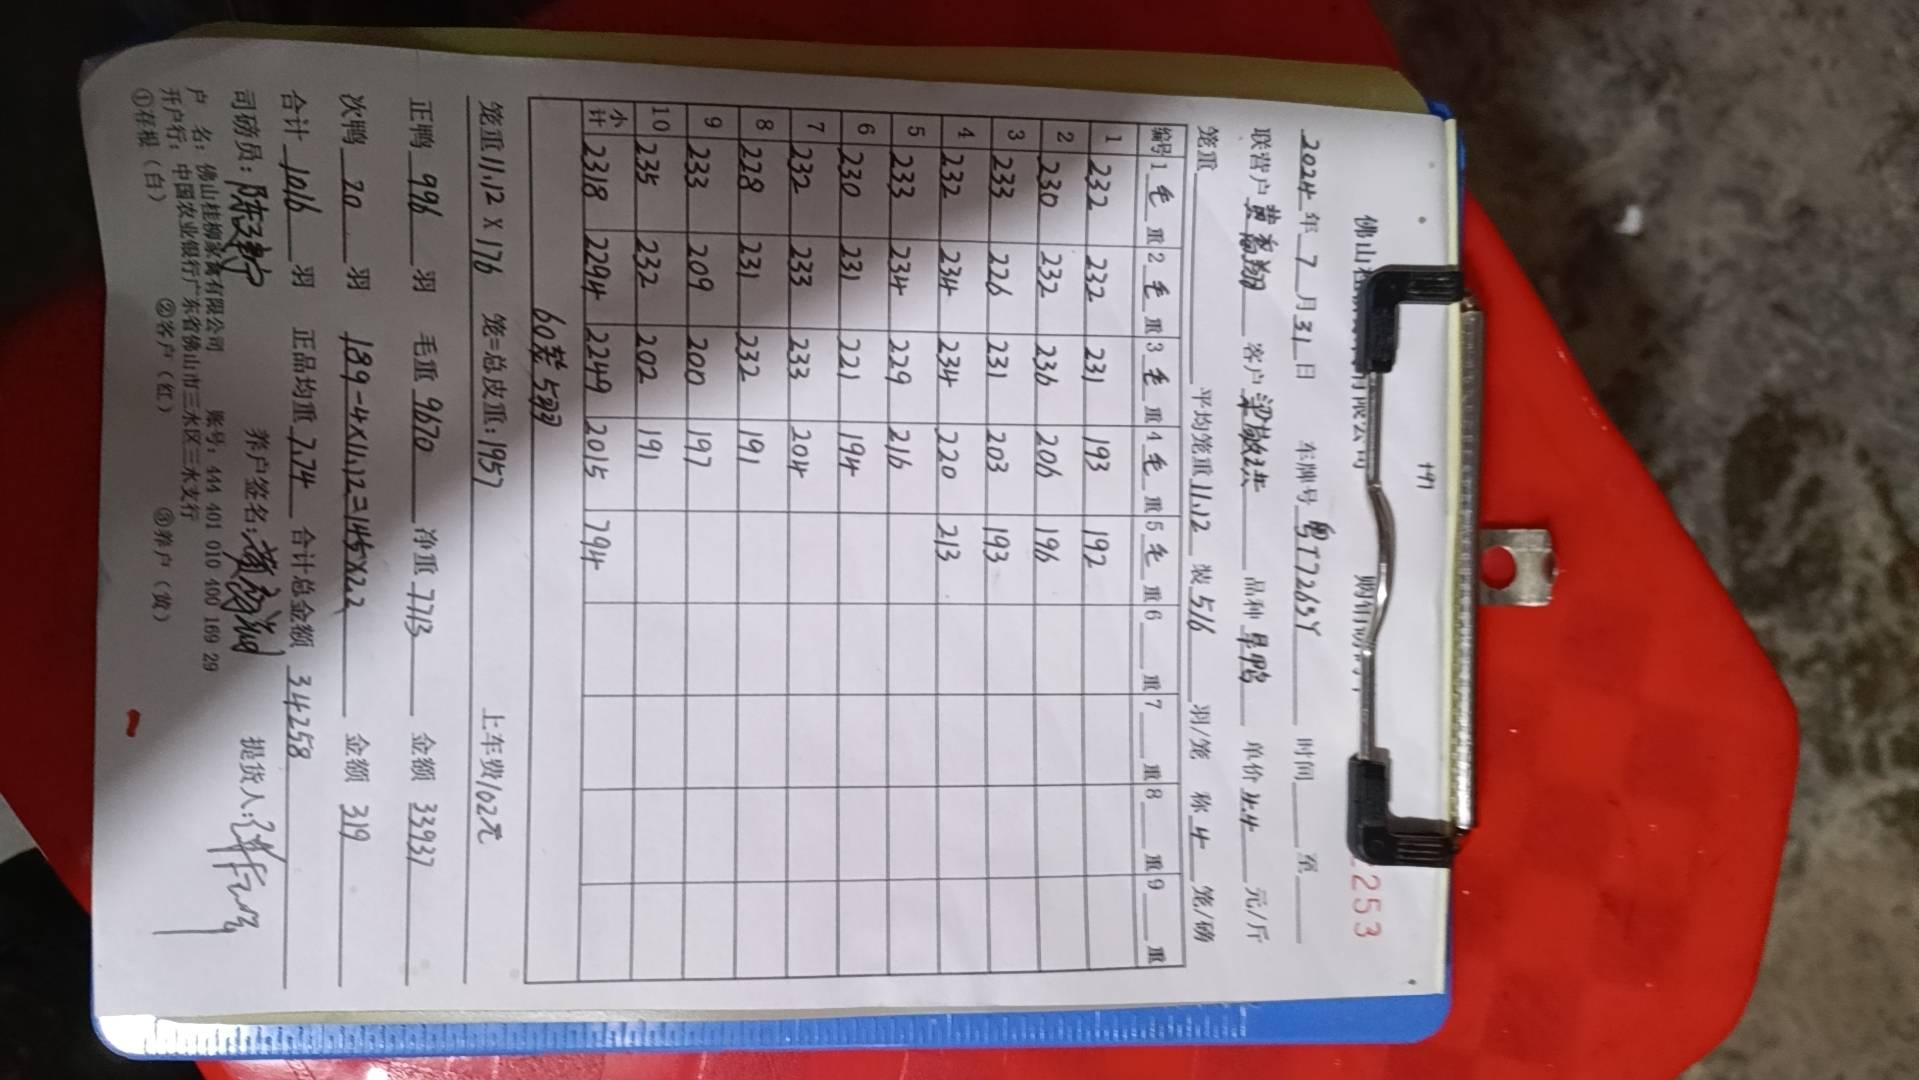 佛山桂
有限公司
购销
253
2024年7月31日 车牌号粤T7265Y 时间 至
联营户黄高翔 客户梁敬 品种旱鸭 单价4.4元/斤
笼重 平均笼重11.12 装5|6羽/笼 称4笼/磅
编号 1毛重 2毛重 3毛重 4毛重 5毛重 6重 7重 8重 9重
1 232 232 231 193 192
2 230 232 236 206 196
3 233 226 231 203 193
4 232 234 234 220 213
5 233 234 229 216
6 230 231 221 194
7 232 233 233 204
8 228 231 232 191
9 233 209 200 197
10 235 232 202 191
小计 2318 2294 2249 2015 794
60装5羽
笼重11.12×176 笼=总皮重:1957 上车费102元
正鸭996羽 毛重9670 净重7713 金额33937
次鸭20羽 189-4×11.12=145×2.2 金额319
合计1016羽 正品均重7.74 合计总金额34258
司磅员: 养户签名:黄高翔 提货人:
户 名:佛山桂柳家禽有限公司 账号:444 401 010 400 169 29
开户行:中国农业银行广东省佛山市三水区三水支行
①存根(白) ②客户(红) ③养户(黄)